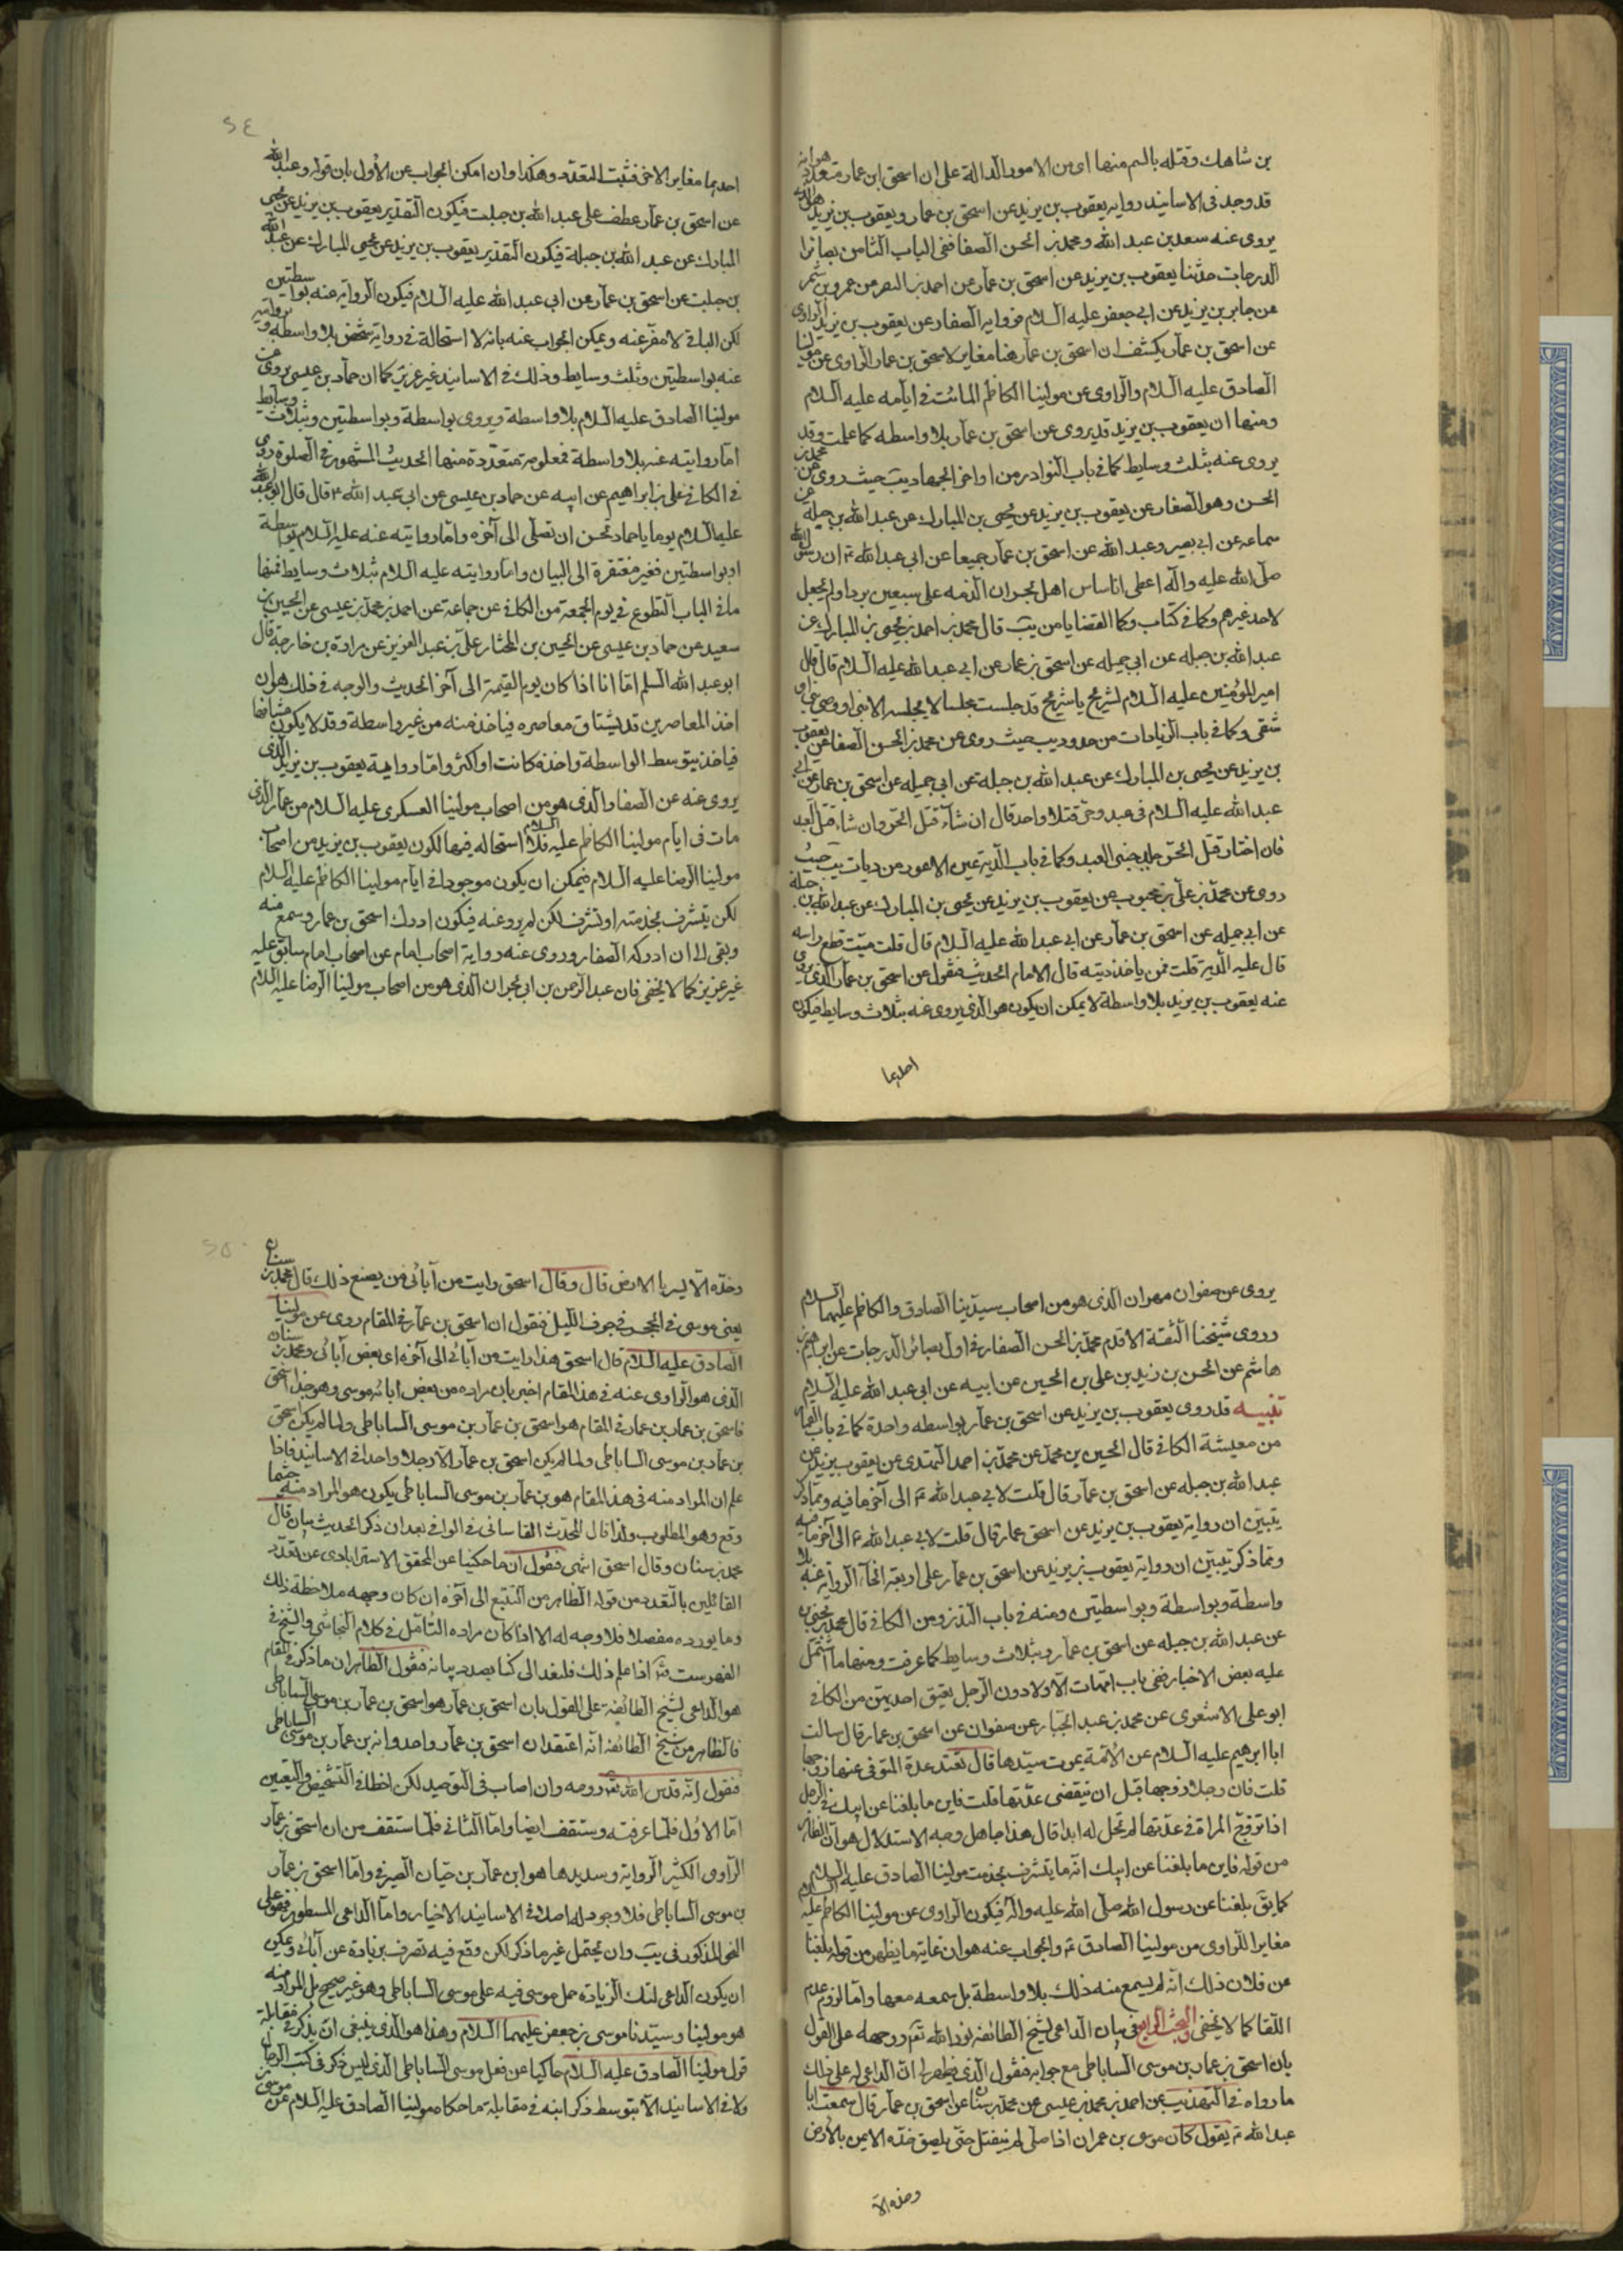 بن شاهك وقتله بالسم منها اى من الامور الدالة على ان اسحق ابن عمار متعدد هو انه
قد وجد فى الاسانيد رواية يعقوب بن يزيد عن اسحق بن عمار ويعقوب بن يزيد
يروى عنه سعد بن عبد الله ومحمد بن الحسن الصفار ففى الباب الثامن بصائر
الدرجات حدثنا يعقوب بن يزيد عن اسحق بن عمار عن احمد بن النضر عن عمرو بن شمر
عن جابر بن يزيد عن ابى جعفر عليه السلام فرواية الصفار عن يعقوب بن يزيد الراوى
عن اسحق بن عمار يكشف ان اسحق بن عمار هنا مغاير لاسحق بن عمار الراوى عن مولينا
الصادق عليه السلام والراوى عن مولينا الكاظم المائت فى ايامه عليه السلام
ومنها ان يعقوب بن يزيد قد يروى عن اسحق بن عمار بلا واسطه كما علمت وقد
يروى عنه بثلث وسايط كما فى باب النوادر من اواخر الجهاد يب حيث روى عن محمد بن
الحسن وهو الصفار عن يعقوب بن يزيد عن يحيى بن المبارك عن عبد الله بن جبله عن
سماعه عن ابى بصير وعبد الله عن اسحق بن عمار جميعا عن ابى عبد الله ع ان رسول الله
صلى الله عليه وآله اعطى اناسا من اهل نجران الذمه على سبعين بردا ولم يجعل
لاحد غيرهم وكما فى كتاب القضايا من يب قال محمد بن احمد بن يحيى بن المبارك عن
عبد الله بن جبله عن ابى جميله عن اسحق بن عمار عن ابى عبد الله عليه السلام قال قال
امير المؤمنين عليه السلام لشريح يا شريح قد جلست مجلسا لا يجلسه الا نبى او وصى نبى او
شقى وكما فى باب الزيادات من حدود يب حيث روى عن محمد بن الحسن الصفار عن يعقوب
بن يزيد عن يحيى بن المبارك عن عبد الله بن جبلة عن ابى جميله عن اسحق بن عمار عن ابى
عبد الله عليه السلام فى عبد وحر قتلا واحدا قال ان شاء قتل الحر وان شاء قتل العبد
فان اختار قتل الحر جلد جنبى العبد وكما فى باب الدية عين الاعور من ديات يب حيث
روى عن محمد بن على بن محبوب عن يعقوب بن يزيد عن يحيى بن المبارك عن عبد الله بن جبلة
عن ابى جميله عن اسحق بن عمار عن ابى عبد الله عليه السلام قال قلت ميت قطع راسه
قال عليه الدية قلت فمن ياخذ ديته قال الامام الحديث فنقول عن اسحق بن عمار الذى يروى
عنه يعقوب بن يزيد بلا واسطة لا يمكن ان يكون هو الذى يروى عنه بثلاث وسايط فيكون
احدهما
احدهما مغاير الاخر فثبت التعدد وهكذا وان امكن الجواب عن الاول بان قوله وعبد الله
عن اسحق بن عمار عطف على عبد الله بن جبلت فيكون التقدير يعقوب بن يزيد عن يحيى
المبارك عن عبد الله بن جبلة فيكون التقدير يعقوب بن يزيد عن يحيى المبارك عن عبد الله
بن جبلت عن اسحق بن عمار عن ابى عبد الله عليه السلام فيكون الرواية عنه بواسطتين
لكن الباقى لا مفر عنه ويمكن الجواب عنه بانه لا استحالة فى رواية شخص بلا واسطه وروايته
عنه بواسطتين وثلث وسايط وذلك فى الاسانيد غير عزيز كما ان حماد بن عيسى يروى عن
مولينا الصادق عليه السلام بلا واسطة ويروى بواسطة وبواسطتين وبثلاث وسايط
اما روايته عنه بلا واسطة فمعلومة متعددة منها الحديث المشهور فى الصلوة روى
فى الكافى على بن ابراهيم عن ابيه عن حماد بن عيسى عن ابى عبد الله ع قال قال ابو عبد الله
عليه السلام يوما يا حماد تحسن ان تصلى الى آخره واما روايته عنه عليه السلام بواسطة
او بواسطتين فغير مفتقرة الى البيان واما روايته عليه السلام بثلاث وسايط فمنها
ما فى الباب التطوع فى يوم الجمعة من الكافى عن جماعة عن احمد بن محمد بن عيسى عن الحسين بن
سعيد عن حماد بن عيسى عن الحسين بن المختار على بن عبد العزيز عن مرادة بن خارجة قال
ابو عبد الله السلم اما انا اذا كان يوم القيمة الى آخر الحديث والوجه فى ذلك هو ان
اخذ المعاصرين قد يشتاق معاصره فياخذ منه من غير واسطة وقد لا يكون مشتاقا
فياخذ بتوسط الواسطة واخذه كانت او اكثر واما رواية يعقوب بن يزيد الذى
يروى عنه عن الصفار والذى هو من اصحاب مولينا العسكرى عليه السلام من عمار الذى
مات فى ايام مولينا الكاظم عليه السلام فلا استحاله فيها لكون يعقوب بن يزيد من اصحاب
مولينا الرضا عليه السلام فيمكن ان يكون موجودا فى ايام مولينا الكاظم عليه السلام
لكن يتشرف بخدمته او تشرف لكن لم يرو عنه فيكون ادرك اسحق بن عمار وسمع منه
وبقى الى ان ادركه الصفار وروى عنه رواية اصحاب امام عن اصحاب امام سابق عليه
غير عزيز كما لا يخفى فان عبد الرحمن بن ابى نجران الذى هو من اصحاب مولينا الرضا عليه السلام
يروى عن صفوان مهران الذى هو من اصحاب سيدينا الصادق والكاظم عليهما السلام
وروى شيخنا الثقة الاقدم محمد بن الحسن الصفار فى اول بصائر الدرجات عن ابراهيم بن
هاشم عن الحسن بن زيد بن على بن الحسين عن ابيه عن ابى عبد الله عليه السلام
تنبيه قد روى يعقوب بن يزيد عن اسحق بن عمار بواسطه واحدة كما فى باب
من معيشة الكافى قال الحسين بن محمد عن محمد بن احمد النهدى عن يعقوب بن يزيد عن
عبد الله بن جبله عن اسحق بن عمار قال قلت لابى عبد الله ع الى آخر ما فيه ومما ذكر
يتبين ان رواية يعقوب بن يزيد عن اسحق عمار قال قلت لابى عبد الله ع الى آخر ما فيه
ومما ذكر تبين ان رواية يعقوب بن يزيد عن اسحق بن عمار على اربعة انحاء الرواية عنه بلا
واسطة وبواسطة وبواسطتين ومنه فى باب النذر ومن الكافى قال محمد بن يحيى
عن عبد الله بن جبله عن اسحق بن عمار وبثلاث وسايط كما عرفت ومنها ما اشتمل
عليه بعض الاخبار ففى باب امهات الاولاد ون الرجل يعتق احديهن من الكافى
ابو على الاشعرى عن محمد بن عبد الجبار عن صفوان عن اسحق بن عمار قال سالت
ابا ابراهيم عليه السلام عن الامة يموت سيدها قال تعتد عدة المتوفى عنها زوجها
قلت فان رجلا تزوجها قبل ان تنقضى عدتها قلت فاين ما بلغنا عن ابيك فى الرجل
اذا تزوج المراة فى عدتها لم تحل له ابدا قال هذا جاهل وجه الاستدلال هو ان الظاهر
من قوله فاين ما بلغنا عن ابيك انه ما يتشرف بخدمت مولينا الصادق عليه السلام
كما يق بلغنا عن رسول الله صلى الله عليه وآله فيكون الراوى عن مولينا الكاظم عليه السلام
مغاير اللراوى من مولينا الصادق ع والجواب عنه هو ان غاية ما يظهر من قوله بلغنا
عن فلان ذلك انه لم يسمع منه ذلك بلا واسطة بل سمعه معها واما لزوم عدم
اللقا كما لا يخفى والبحث الرابع فى بيان الداعى لشيخ الطائفه نور الله تع روحه على القول
بان اسحق بن عمار بن موسى الساباطى مع جوابه فنقول الذى يظهر لى ان الداعى له على ذلك
ما رواه فى التهذيب عن احمد بن محمد بن عيسى عن محمد بن سنان عن اسحق بن عمار قال سمعت ابا
عبد الله ع يقول كان موسى بن عمران اذا صلى لم ينفتل حتى يلصق خده الايمن بالارض
وخده الا
وخده الايسر بالارض قال وقال اسحق رايت من آبائى من يصنع ذلك قال محمد بن سنان
يعنى موسى فى الحجر فى جوف الليل فنقول ان اسحق بن عمار فى المقام روى عن مولينا
الصادق عليه السلام قال اسحق هذا رايت من آبائى الى آخره اى بعض آبائى ومحمد بن سنان
الذى هو الراوى عنه فى هذا المقام اخبر بان مراده من بعض ابائه موسى وهو جد اسحق
فاسحق بن عمار بن عمار فى المقام هو اسحق بن عمار بن موسى الساباطى ولما لم يكن اسحق
بن عمار بن موسى الساباطى ولما لم يكن اسحق بن عمار الا رجلا واحدا فى الاسانيد فاذا
علم ان المراد منه فى هذا المقام هو بن عمار بن موسى الساباطى يكون هو المراد منه حيثما
وقع وهو المطلوب ولذا قال المحدث القاسانى فى الوافى بعد ان ذكر الحديث بيان قال
محمد بن سنان وقال اسحق انتهى فنقول ان ما حكينا عن المحقق الاستر ابادى عن تعدد
القائلين بالتعدد من قوله الظاهر من التتبع الى آخره ان كان وجهه ملاحظة ذلك
وما يورده مفصلا فلا وجه له الا اذا كان مراده التامل فى كلام النجاشى والشيخ فى
الفهرست ثم اذا علم ذلك فلنعد الى كنا بصدد بيانه فنقول الظاهر ان ما ذكر فى المقام
هو الداعى لشيخ الطائفة على القول بان اسحق بن عمار هو اسحق بن عمار بن موسى الساباطى
فالظاهر من شيخ الطائفه انه اعتقد ان اسحق بن عمار واحد وانه بن عمار بن موسى الساباطى
فنقول انه قدس الله تع روحه وان اصاب فى التوحيد لكن اخطا فى التشخيص والتعيين
اما الاول فلما عرفته وستقف ايضا واما الثانى فلما ستقف من ان اسحق بن عمار
الراوى الكثير الرواية وسديدها هو ابن عمار بن حيان الصيرفى واما اسحق بن عمار
بن موسى الساباطى فلا وجود له اصلا فى الاسانيد الاخيار واما الداعى المسطور فهو على
النحو المذكور فى يب وان يحتمل غير ما ذكر لكن وقع فيه تصرف بزيادة عن آبائى ويمكن
ان يكون الداعى لتلك الزيادة حمل موسى فيه على موسى الساباطى وهو غير صحيح بل المراد منه
هو مولينا وسيدنا موسى بن جعفر عليهما السلام وهذا هو الذى ينبغى ان يذكر فى مقابلة
قول مولينا الصادق عليه السلام حاكيا عن فعل موسى الساباطى الذى ليس ذكر فى كتب الرجال
ولا فى الاسانيد الا بتوسط ذكر ابنه فى مقابلة ما حكاه مولينا الصادق عليه السلام عن موسى بن